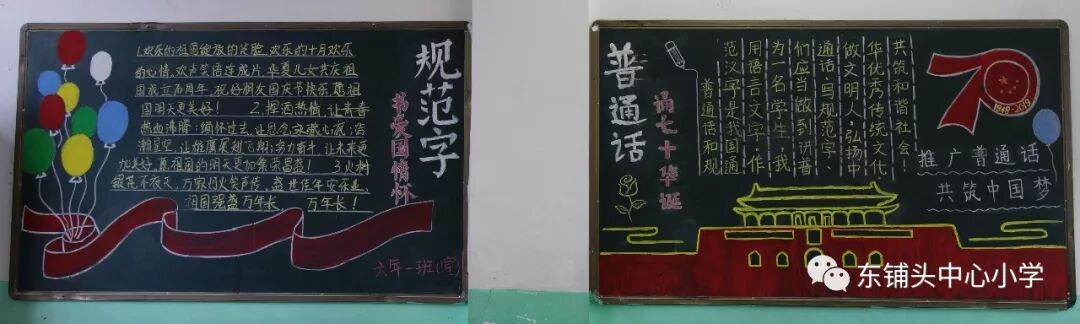 规范字
书爱国情怀
1.欢乐的祖国绽放的笑脸,欢乐的十月欢乐
的心情,欢声笑语连成片,华夏儿女共庆祖
国成立70周年,祝好朋友国庆节快乐,愿祖
国明天更美好! 2.挥洒热情,让青春
热血沸腾;缅怀过去,让思念藏心底;浩
瀚星空,让雄鹰展翅飞翔;努力奋斗,让未来更
加美好,愿祖国的明天更加繁荣昌盛! 3.火树
银花不夜天,万家灯火笑声传,盛世佳年安乐业,
祖国强盛万年长! 万年长!
六年一班(宣)
普通话
诵七十华诞
普通话和规
范汉字是我国通
用语言文字,作
为一名学生,我
们应当做到讲普
通话,写规范字,
做文明人,弘扬中
华优秀传统文化
共筑和谐社会!
70
1949-2019
推广普通话
共筑中国梦
东铺头中心小学